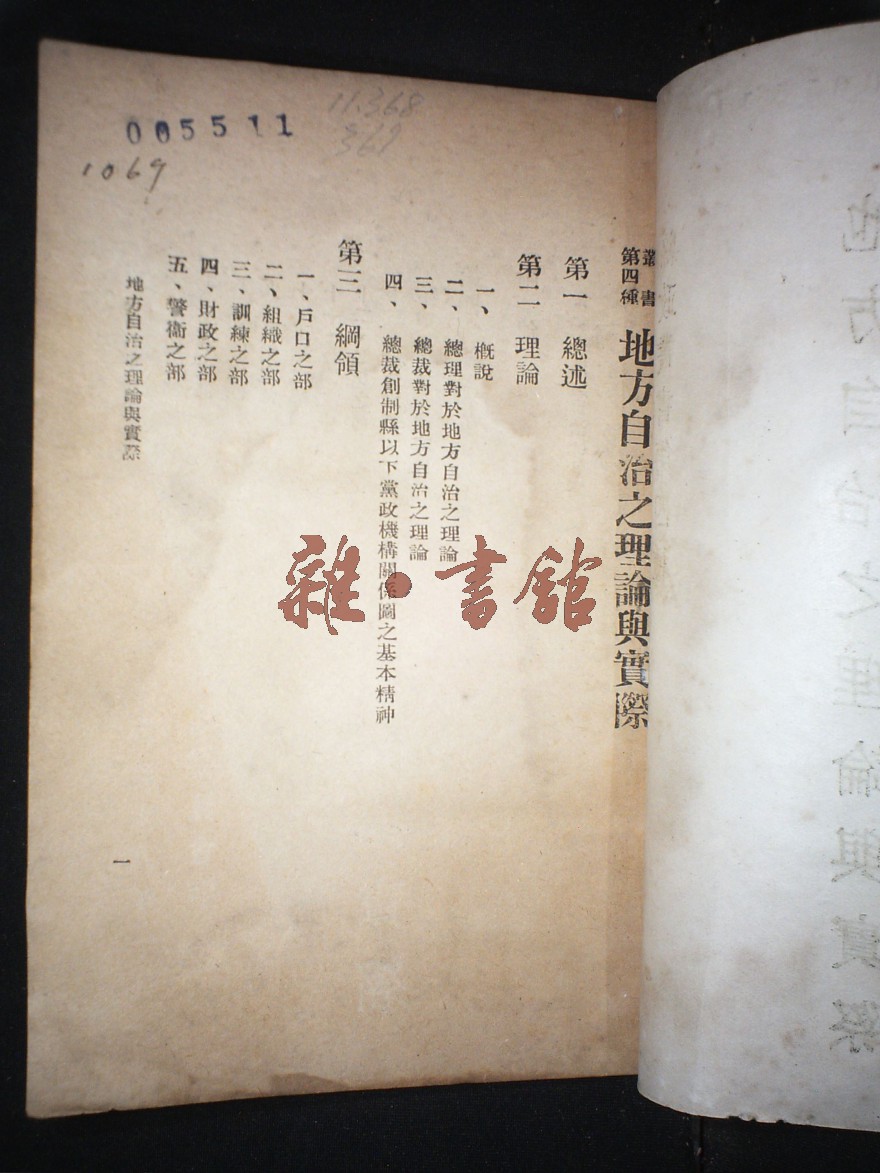 005511
11.368
369
1069
叢書
第四種
地方自治之理論與實際
第一 總述
第二 理論
一、概說
二、總理對於地方自治之理論
三、總裁對於地方自治之理論
四、總裁創制縣以下黨政機構關係圖之基本精神
第三 綱領
一、戶口之部
二、組織之部
三、訓練之部
四、財政之部
五、警衞之部
地方自治之理論與實際
一
雜·書館
地方自治之理論與實際